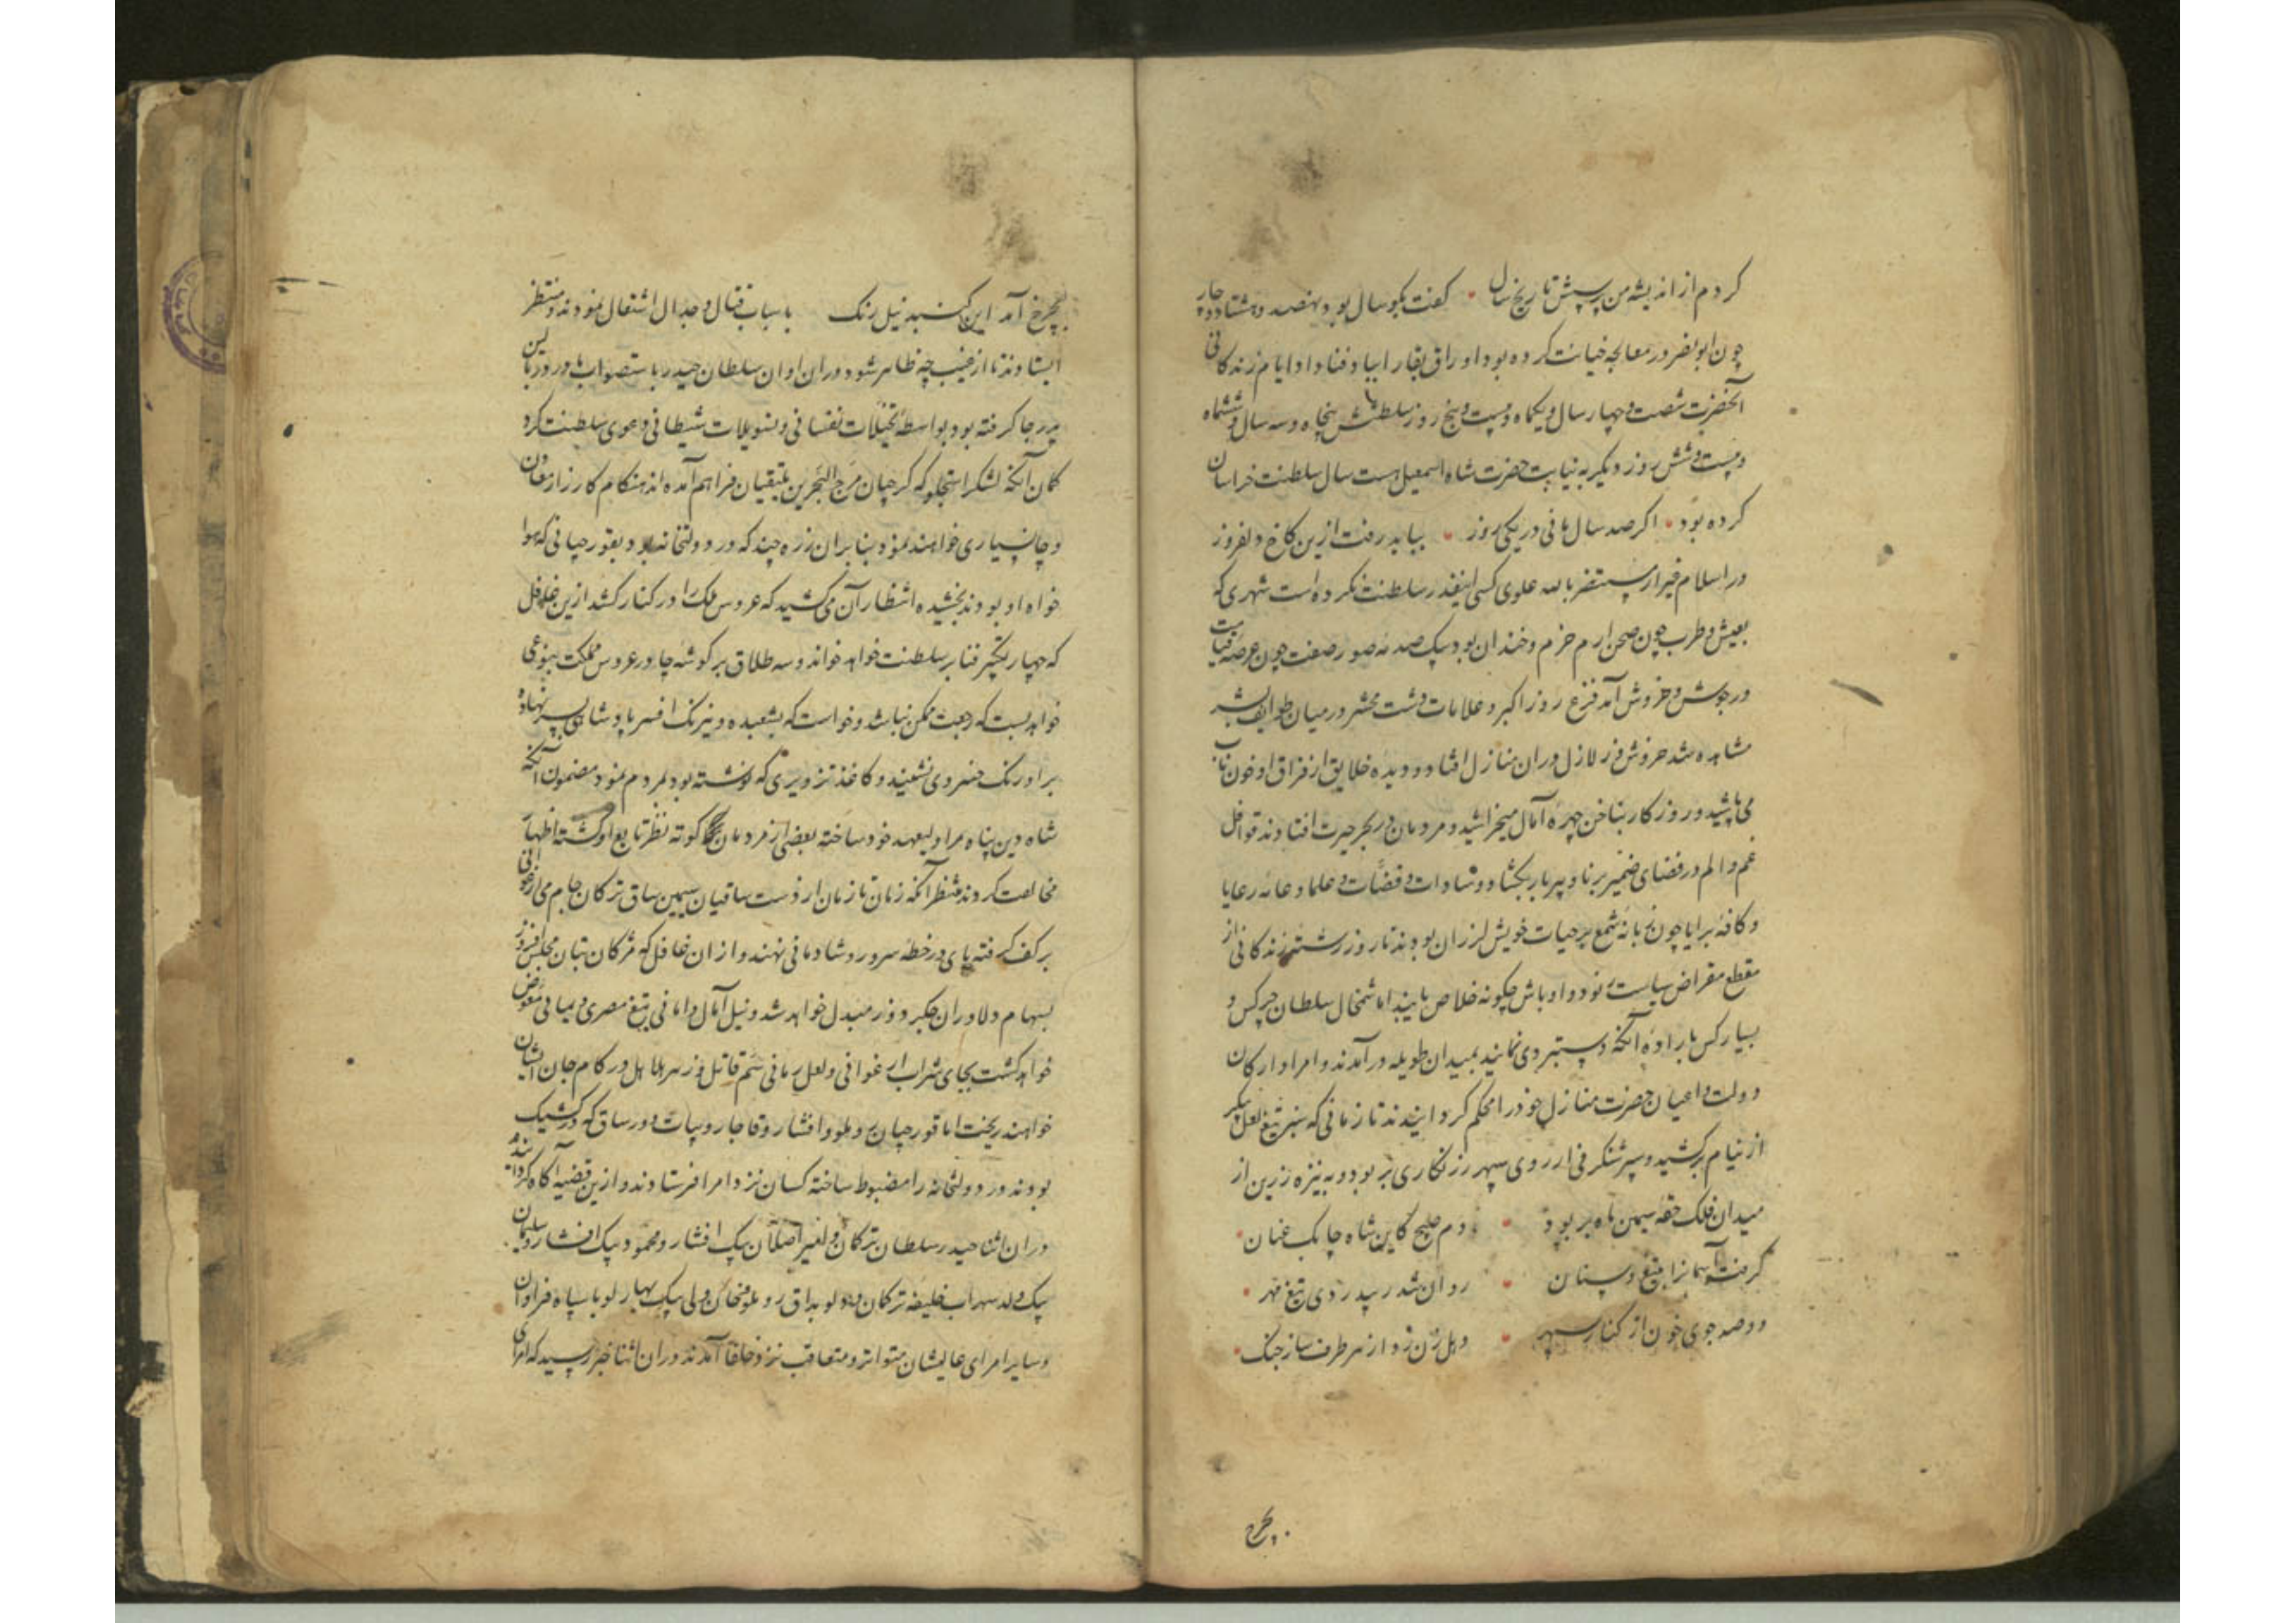 کردم از اندیشه من پرسش تاریخ سال کفت بکو سال بود نهصد و هشتاد و چار
چون ابو نصر در معالجه خیانت کرده بود اوراق بقا را بباد فنا داد ایام زندکانی
آنحضرت شصت و چهار سال و یکماه و بیست و پنج روز سلطنتش پنجاه و سه سال و ششماه
و بیست و شش روز دیکر به نیابت حضرت شاه اسمعیل هست سال سلطنت خراسان
کرده بود اکر صد سال مانی در یکی روز بباید رفت ازین کاخ دلفروز
در اسلام غیر از مستنصر بالله علوی کسی اینقدر سلطنت نکرده است شهری که
بعیش و طرب چون صحن ارم خرم و خندان بود بیک صدمه صور صفت چون عرصه قیامت
در جوش و خروش آمد فزع روز اکبر و علامات دشت محشر در میان طوایف بشر
مشاهده شد خروش و زلازل دران منازل افتاد و دیده خلایق از فراق او خون ناب
می پاشید و روزکار بناخن چهره آمال میخراشید و مردمان در بحر حیرت افتادند قوافل
غم و الم در فضای ضمیر برنا و پیر بار بکشاد و سادات و قضات و علما و عامه رعایا
و کافه برایا چون زبانه شمع بر حیات خویش لرزان بودند تا روز رشته زندکانی از
مقطع مقراض سیاست نود و اوباش چکونه خلاص یابند اما شمخال سلطان چرکس و
بسیار کس باراده آنکه دستبردی نمایند بمیدان طویله درآمدند و امرا و ارکان
دولت و اعیان حضرت منازل خود را محکم کردانیدند تا زمانی که سنبر تیغ لعل پیکر
از نیام برکشید و سپر شنکرفی از روی سپهر زنکاری بربود و به نیزه زرین از
میدان فلک حقه سیمین ماه بربود دم صبح کاین شاه چابک عنان
کرفت آسمانرا بتیغ و سنان روان شد ز پیدردی تیغ مهر
دو صد جوی خون از کنار سپهر دهل زن زد از هر طرف ساز جنک
بچرخ
بچرخ آمد این کنبد نیل رنک باسباب قتال و جدال اشتغال نمودند و منتظر
ایستادند تا از غیب چه ظاهر شود دران اوان سلطان حیدر باستصواب در دربالین
پدر جا کرفته بود بواسطه تخیلات نفسانی و تسویلات شیطانی دعوی سلطنت کرد
کمان آنکه لشکر استجلو که کرجیان مرج البحرین یلتقیان فراهم آمده اند هنکام کارزار معاون
و جانسپاری خواهند نمود بنابران زره چند که در دولتخانه بود بقورچیانی که هوا
خواه او بودند بخشیده انتظار آن می کشید که عروس ملک را در کنار کشد ازین غافل
که چهار تکبیر فنا بر سلطنت خواهد خواند و سه طلاق بر کوشه چادر عروس مملکت بنوعی
خواهد بست که رجعت ممکن نباشد و خواست که بشعبده و نیرنک افسر پادشاهی بسر نهاده
بر اورنک خسروی نشیند و کاغذ تزویری که نوشته بود بمردم نمود مضمون آنکه
شاه دین پناه مرا ولیعهد خود ساخته بعضی از مردمان کوته نظر تابع او کشته اظهار
مخالفت کردند منتظر آنکه زمان تا زمان از دست ساقیان سیمین ساق ترکان جام می ارغوانی
بر کف کرفته پای در خطه سرور و شادمانی نهند و از ان غافل که مژکان بتان مجلس افروز
بسهام دلاوران جکر دوز مبدل خواهد شد و نیل آمال و امانی بتیغ مصری و یمانی معوض
خواهد کشت بجای شراب ارغوانی و لعل رمانی سم قاتل و زهر هلاهل در کام جان ایشان
خواهند ریخت اما قورچیان روملو و افشار و قاجار و بیات و ورساق که در کشیک
بودند در دولتخانه را مضبوط ساخته کسان نزد امرا فرستادند و ازین قضیه آکاه کردانیدند
دران اثنا حیدر سلطان ترکمان و امیر اصلان بیک افشار و محمود بیک افشار و سلیمان
بیک ولد سهراب خلیفه ترکمان و دلو بداق روملو و نخان ولی بیک بهارلو با سپاه فراوان
و سایر امرای عالیشان متواتر و متعاقب نزد خلفا آمدند دران اثنا خبر رسید که امرای